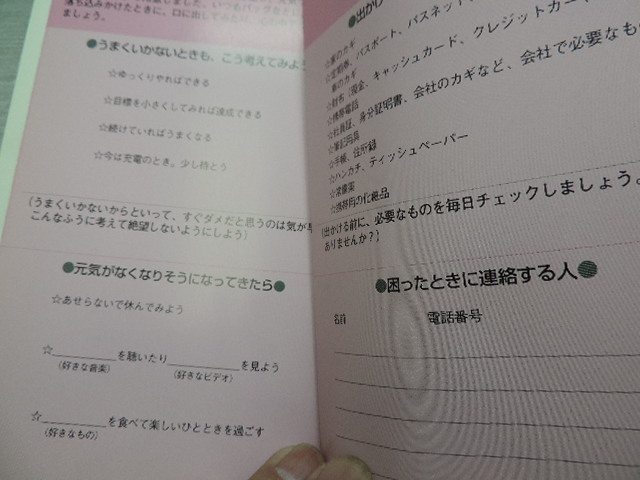 落ち込みかけたときに、口に出してみたり、
ましょう。
●うまくいかないときも、こう考えてみよ
☆ゆっくりやればできる
☆目標を小さくしてみれば達成できる
☆続けていればうまくなる
☆今は充電のとき。少し待とう
(うまくいかないからといって、すぐダメだと思うのは気が早
こんなふうに考えて絶望しないようにしよう)
●元気がなくなりそうになってきたら●
☆あせらないで休んでみよう
☆__________を聴いたり__________を見よう
(好きな音楽) (好きなビデオ)
☆__________を食べて楽しいひとときを過ごす
(好きなもの)
●出か
☆家のカギ
☆定期券、パスポート、パスネット、
車のカギ
☆財布(現金、キャッシュカード、クレジットカード
☆携帯電話
☆社員証、身分証明書、会社のカギなど、会社で必要なも
☆筆記用具
☆手帳、住所録
☆ハンカチ、ティッシュペーパー
☆常備薬
☆携帯用の化粧品
(出かける前に、必要なものを毎日チェックしましょう。
ありませんか?)
●困ったときに連絡する人●
名前 電話番号